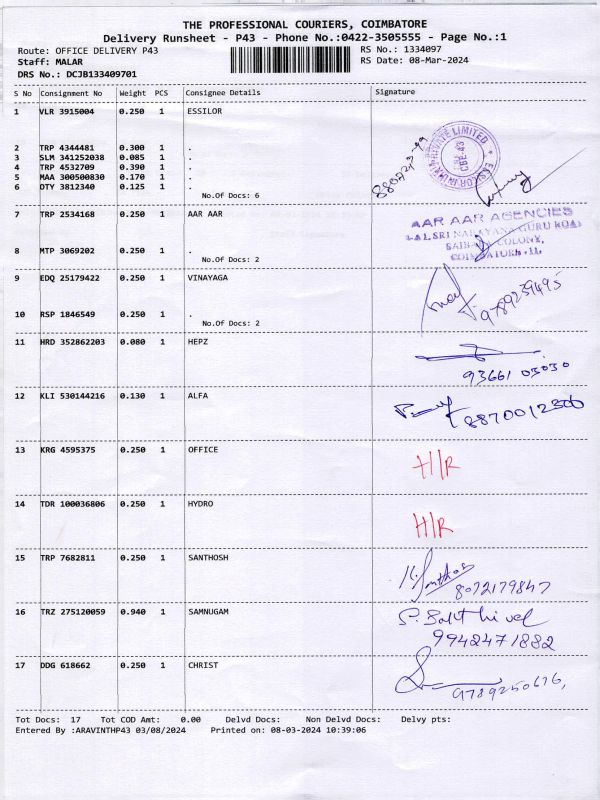 THE PROFESSIONAL COURIERS, COIMBATORE
Delivery Runsheet - P43 - Phone No.:0422-3505555 - Page No.:1
Route: OFFICE DELIVERY P43 RS No.: 1334097
Staff: MALAR RS Date: 08-Mar-2024
DRS No.: DCJB133409701
S No Consignment No Weight PCS Consignee Details Signature
1 VLR 3915004 0.250 1 ESSILOR
PRIVATE LIMITED
CBE-43
2 TRP 4344481 0.300 1 .
3 SLM 341252038 0.085 1 .
4 TRP 4532709 0.390 1 .
5 MAA 300500830 0.170 1 .
6 DTY 3812340 0.125 1 .
No.Of Docs: 6
7 TRP 2534168 0.250 1 AAR AAR
AAR AAR AGENCIES
SRI NARAYANA GURU ROAD
SAIBABA COLONY,
COIMBATORE - 11.
8 MTP 3069202 0.250 1 .
No.Of Docs: 2
9 EDQ 25179422 0.250 1 VINAYAGA
9789239495
10 RSP 1846549 0.250 1 .
No.Of Docs: 2
11 HRD 352862203 0.080 1 HEPZ
93661 03030
12 KLI 530144216 0.130 1 ALFA
8870012300
13 KRG 4595375 0.250 1 OFFICE
H/R
14 TDR 100036806 0.250 1 HYDRO
H/R
15 TRP 7682811 0.250 1 SANTHOSH
8072179847
16 TRZ 275120059 0.940 1 SAMNUGAM
S. Sakthivel
9942471882
17 DDG 618662 0.250 1 CHRIST
9789250676,
Tot Docs: 17 Tot COD Amt: 0.00 Delvd Docs: Non Delvd Docs: Delvy pts:
Entered By :ARAVINTHP43 03/08/2024 Printed on: 08-03-2024 10:39:06